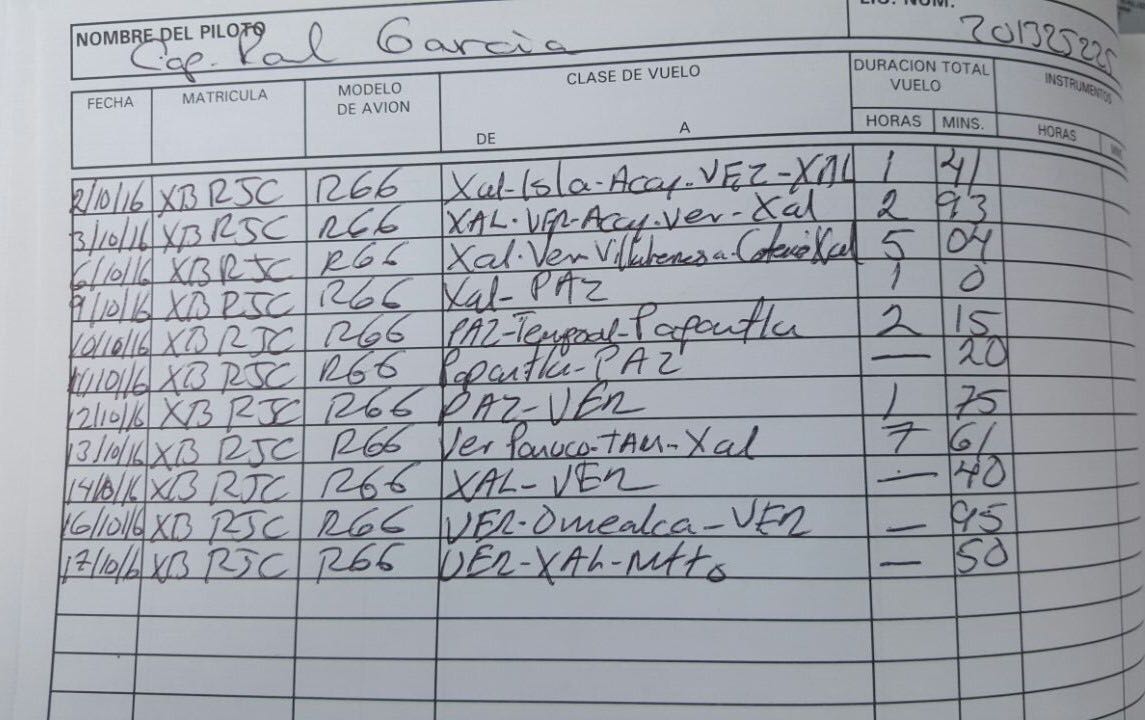 LIC. NUM.
NOMBRE DEL PILOTO
Cap. Pal Garcia 201325225
FECHA MATRICULA MODELO DE AVION CLASE DE VUELO DURACION TOTAL VUELO INSTRUMENTOS
DE A HORAS MINS. HORAS
2/10/16 XB RJC R66 Xal-Isla-Acay-VEZ-XAL 1 41
3/10/16 XB RJC R66 XAL-VER-Acay-Ver-Xal 2 93
6/10/16 XB RJC R66 Xal-Ver Xal 5 04
9/10/16 XB RJC R66 Xal-PAZ 1 0
10/10/16 XB RJC R66 PAZ-Tempoal-Papantla 2 15
11/10/16 XB RJC R66 Papantla-PAZ — 20
12/10/16 XB RJC R66 PAZ-VER 1 75
13/10/16 XB RJC R66 Ver Panuco-TAM-Xal 7 61
14/10/16 XB RJC R66 XAL-VER — 40
16/10/16 XB RJC R66 VER-Omealca-VER — 95
17/10/16 XB RJC R66 VER-XAL-Mtto — 50